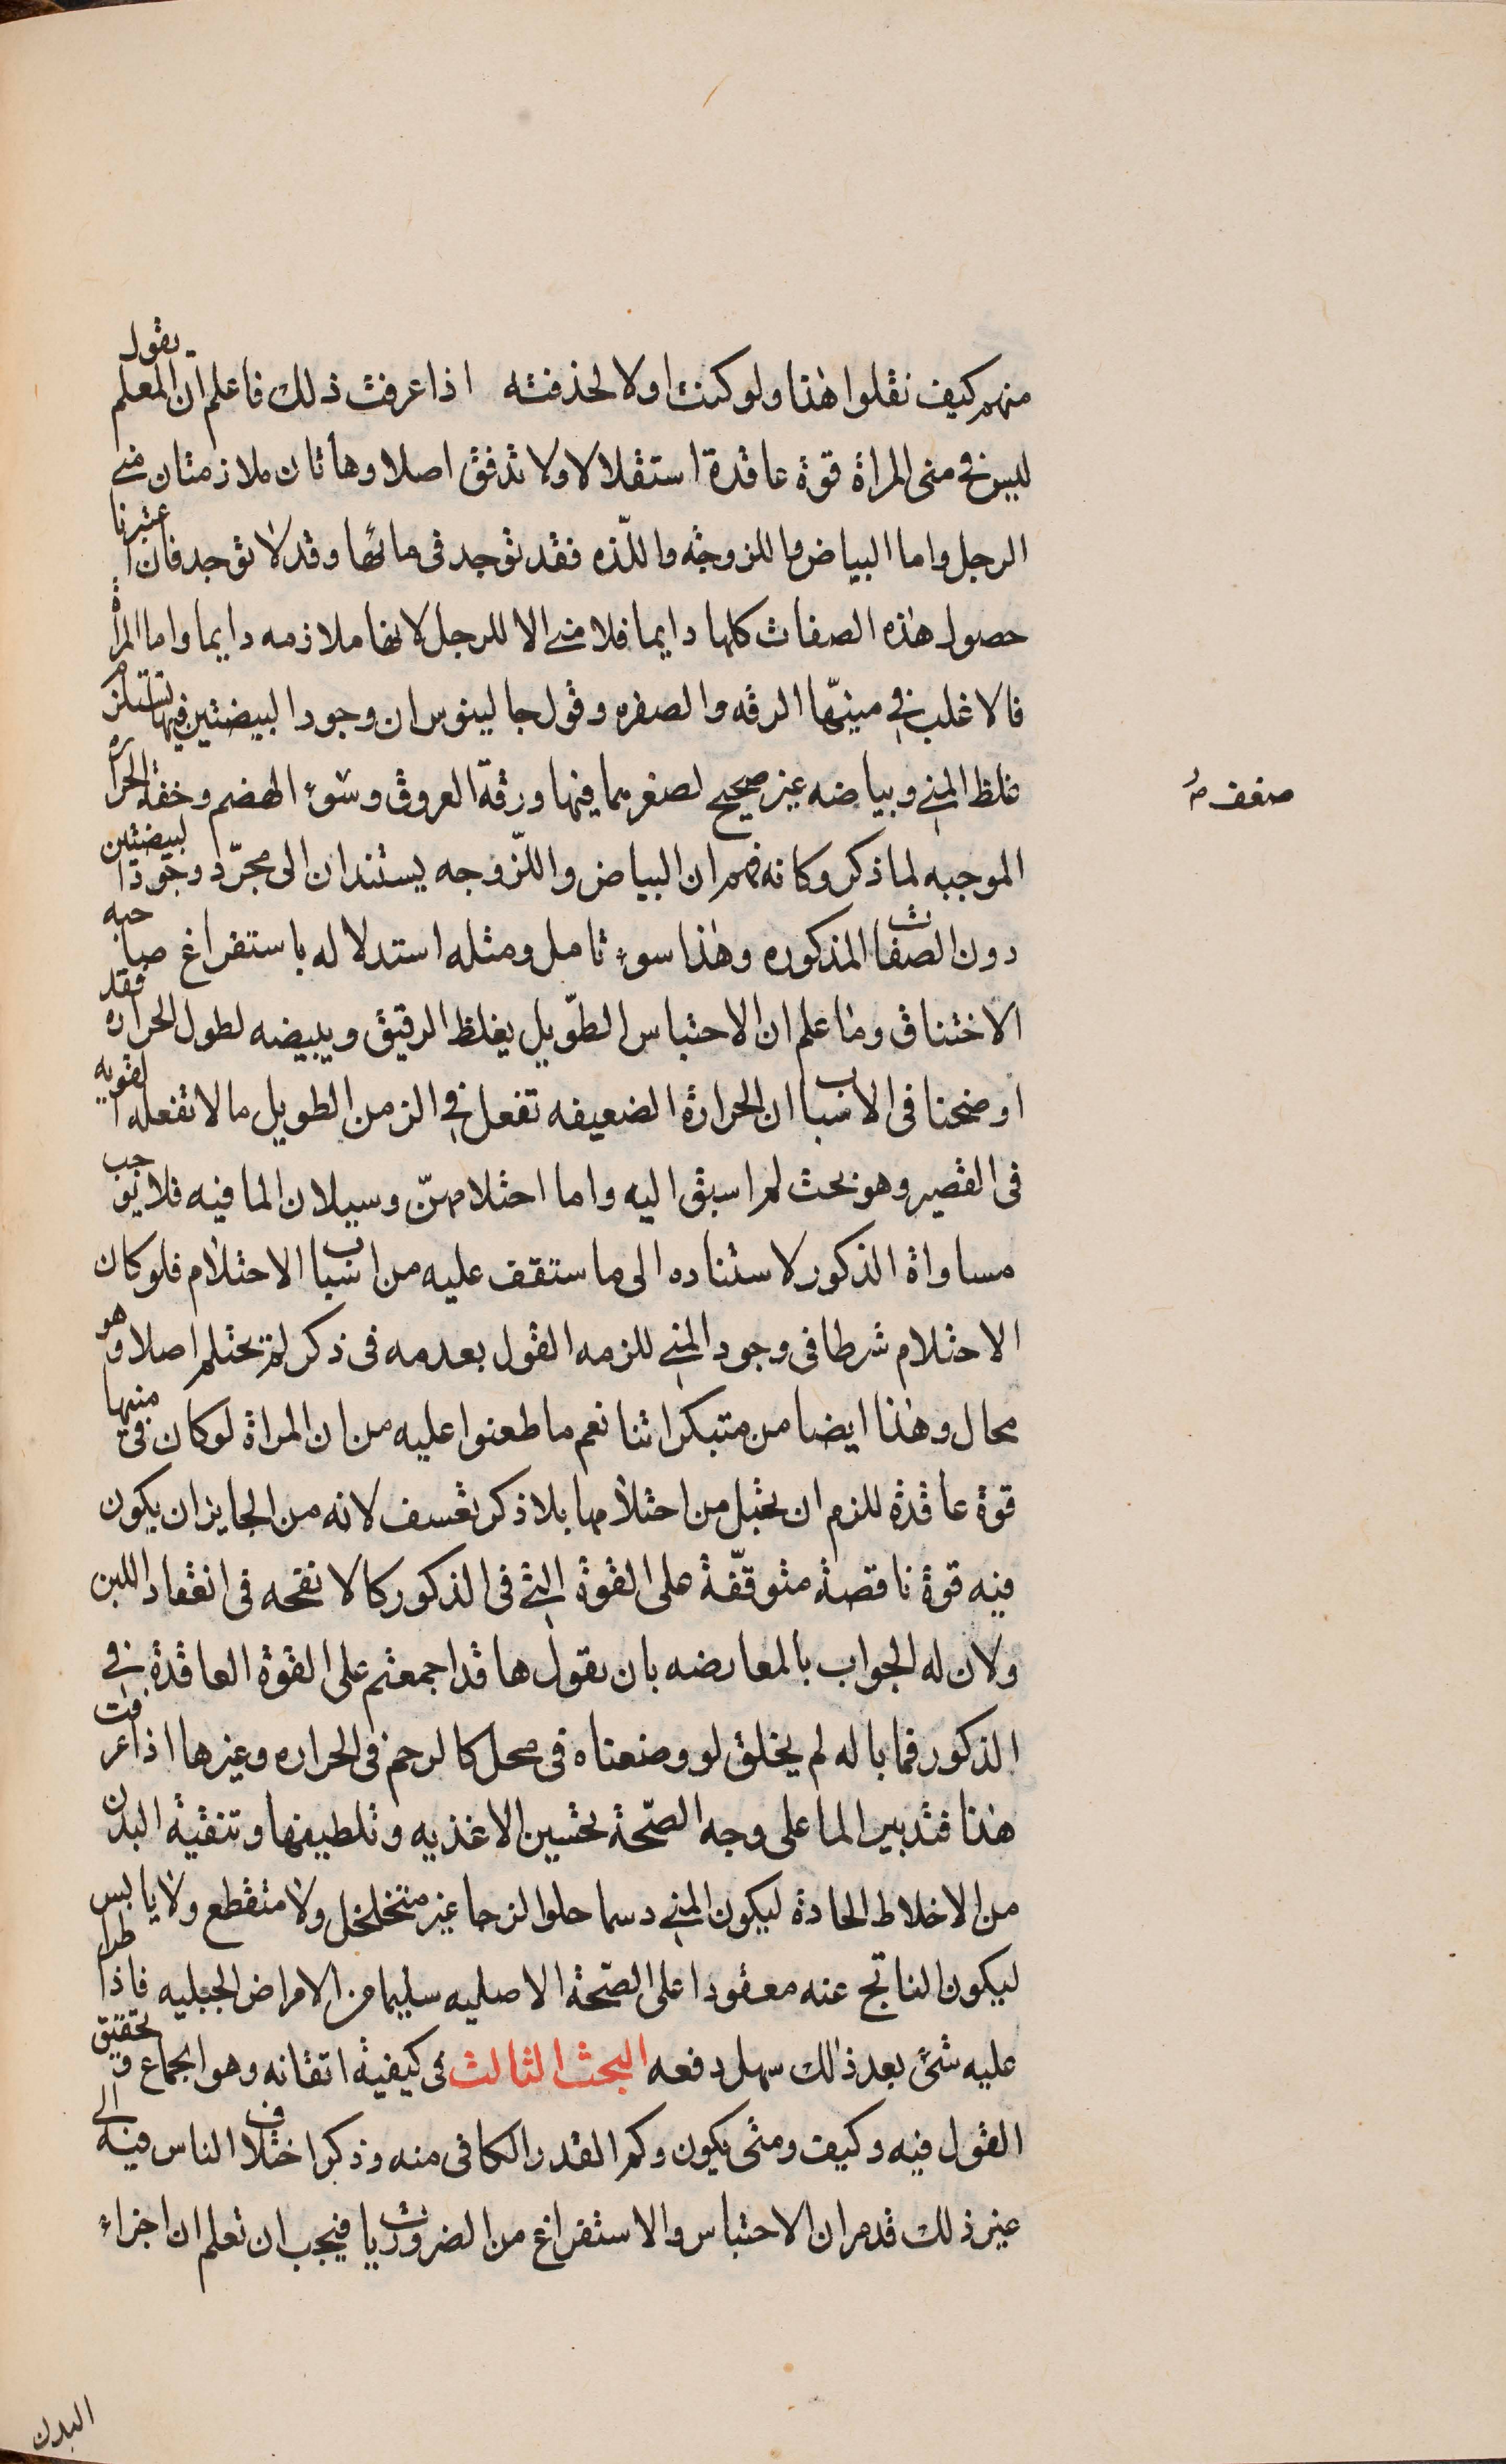 منهم كيف نقلوا هذا ولو كنت اولا لحذفته اذا عرفت ذلك فاعلم ان المعلم يقول
ليس في منى المراة قوة عاقدة استقلالا ولا تدفق اصلا وهاتان ملازمتان لمنى
الرجل واما البياض واللزوجه واللذه فقد توجد فى مائها وقد لا توجد فان اعتبرنا
حصول هذه الصفات كلها دايما فلا منى الا للرجل لانها ملازمه دايما واما المراة
فالاغلب في منيّها الرقه والصفره وقول جالينوس ان وجود البيضتين فيها تستلزم
غلظ المني وبياضه غير صحيح لصغرهما فيها ورقّة العروق وسوء الهضم وخفة الحراره
ضعف
الموجبه لما ذكر وكانه فهم ان البياض واللّزوجه يستندان الى مجرّد وجود البيضتين
دون الصفات المذكوره وهذا سوء تامل ومثله استدلاله باستفراغ صاحبه
الاختناق وما علم ان الاحتباس الطّويل يغلظ الرقيق ويبيضه لطول الحراره فقد
اوضحنا فى الاسباب ان الحرارة الضعيفه تفعل في الزمن الطويل ما لا تفعله القويه
فى القصير وهو بحث لم اسبق اليه واما احتلامهنّ وسيلان الما فيه فلا يوجب
مساواة الذكور لاستناده الى ما ستقف عليه من اسباب الاحتلام فلو كان
الاحتلام شرطا فى وجود المني للزمه القول بعدمه فى ذكر لم يحتلم اصلا وهو
محال وهذا ايضا من مبتكراتنا نعم ما طعنوا عليه من ان المراة لو كان فى منيها
قوة عاقدة للزم ان تحبل من احتلامها بلا ذكر تعسف لانه من الجايز ان يكون
فيه قوة ناقصة متوقّفة على القوة التي فى الذكور كالانفحه فى انعقاد اللبن
ولان له الجواب بالمعارضه بان يقول ها قد اجمعتم على القوة العاقدة في
الذكور فما باله لم يخلق لو وضعناه فى محل كالرحم فى الحراره وغيرها اذا عرفت
هذا فتدبير الما على وجه الصّحة تحسين الاغذيه وتلطيفها وتنقية البدن
من الاخلاط الحادة ليكون المني دسما حلوا لزجا غير متخلخل ولا متقطع ولا يابس
ليكون الناتج عنه معقودا على الصّحة الاصليه سليما من الامراض الجبليه فاذا طرا
عليه شئ بعد ذلك سهل دفعه البحث الثالث فى كيفية اتقانه وهو الجماع وتحقيق
القول فيه وكيف ومتى يكون وكم القدر الكافى منه وذكر اختلاف الناس فيه الى
غير ذلك قد مر ان الاحتباس والاستفراغ من الضروريات فيجب ان تعلم ان اجزاء
البدن